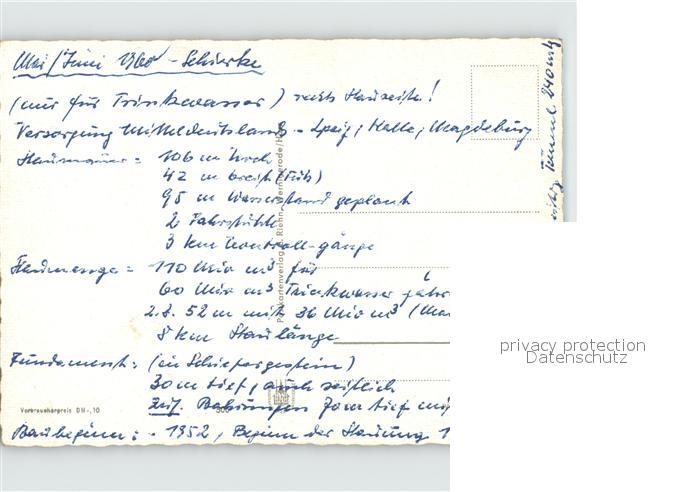 Mai/Juni 1960 - Schierke
(nur für Trinkwasser) rechts Stauseite!
Versorgung Mitteldeutschlands - Leipz; Halle, Magdeburg
Staumauer = 106 m hoch
42 m breit (Fuß)
95 m Wasserstand geplant
2 Fahrstühle
3 km Kontroll-gänge
Staumenge = 110 Mio m³ für
60 Mio m³ Trinkwasser jähr
z.Z. 52 m mit 36 Mio m³ (Ma
8 km Staulänge
Fundament: (in Schiefergestein)
30 m tief, auch seitlich
zus. Bohrungen 70 m tief mi
Baubeginn: - 1952, Beginn der Stauung 1
Tunnel
Postkartenverlag
Verbraucherpreis DM -,10
privacy protection
Datenschutz